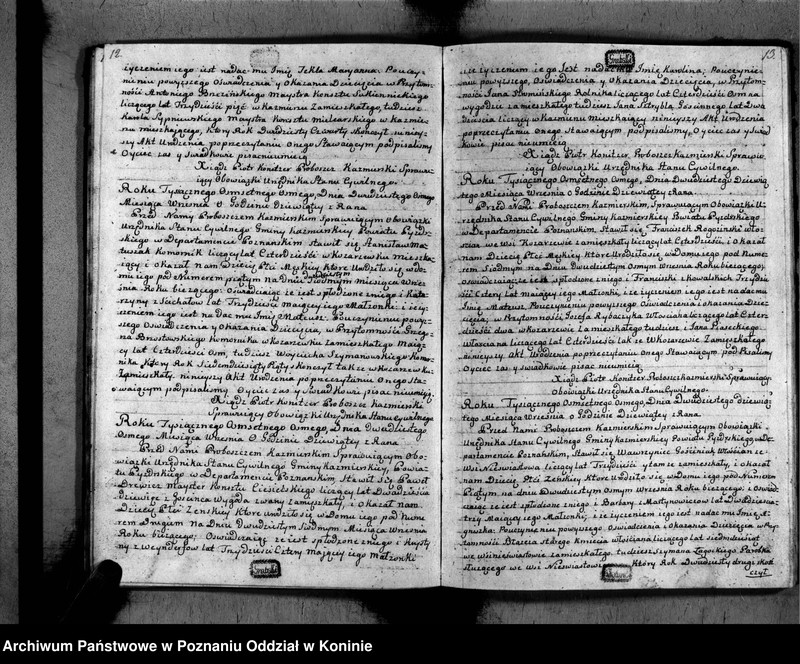 12
życzeniem iego iest nadać mu Imię Tekla Maryanna. Po uczy-
nieniu powyższego Oświadczenia y Okazania Dziecięcia w Przyto-
mności Antoniego Brzezińskiego Maystra Konsztu Sukienniczkiego
liczącego lat Trzydzieści pięć w Kazmierzu Zamieszkałego, tudzież
Karola Maystra Konsztu w Kazmie-
rzu mieszkającego, który Rok Dwudziesty Czwarty Skończył niniey-
szy Akt Urodzenia, po przeczytaniu onego Stawaiącym podpisaliśmy
Oyciec zaś y Świadkowie pisać nieumieią
Xiądz Piotr Konitzer Proboszcz Kazmierski Sprawu-
iący Obowiązki Urzędnika Stanu Cywilnego.
Roku Tysiącznego Osmsetnego Osmego, Dnia Dwudziestego Osmego
Miesiąca Września o Godzinie Dziewiątey z Rana
Przed Namy Proboszczem Kazmierskim Sprawuiącym Obowiązki
Urzędnika Stanu Cywilnego Gminy Kazmierskiey Powiatu Pyzdr-
skiego w Departamencie Poznańskim stawił się Stanisław
Komornik liczący lat Czterdzieści w Kozarzewku mieszka-
iący: i okazał nam Dziecię Płci Męskiey które Urodziło się w Do-
mu iego pod Numerem piątym na Dniu Dwudziestym Siódmym miesiąca Wrze-
śnia Roku bieżącego: Oświadczaiąc że iest spłodzone z niego i Kata-
rzyny z lat Trzydzieści maiącey iego Małżonki: i że ży-
czeniem iego iest nadać mu Imię Mateusz. Po uczynieniu powyż-
szego Oświadczenia y okazania Dziecięcia, w Przytomności Grzego-
rza Komornika w Kozarzewku Zamieszkałego maią-
cy lat Czterdzieści Osm, tudzież Woyciecha Szymanowskiego Komor-
nika Który Rok Siedemdziesiąty Piąty Skończył także w Kozarzewku
Zamieszkały. niniejszy Akt Urodzenia po przeczytaniu Onego Sta-
waiącym podpisaliśmy Oyciec zaś y Świadkowie pisać nieumieią
Xiądz Piotr Konitzer Proboszcz Kazmierski
Sprawuiący Obowiązki Urzędnika Stanu Cywilnego
Roku Tysiącznego Osmsetnego Osmego, Dnia Dwudziestego
Osmego Miesiąca Września O Godzinie Dziewiątey z Rana
Przed Nami Proboszczem Kazmierskim Sprawuiącym Obo-
wiązki Urzędnika Stanu Cywilnego Gminy Kazmierskiey, Powia-
tu Pyzdrskiego w Departamencie Poznańskim, Stawił się Paweł
Drewicz Mayster Konsztu Ciesielskiego liczący lat Dwadzieścia
dziewięć z Wygoda zwany zamieszkały, i okazał nam
Dziecię Płci Zenskiey które Urodziło się w Domu iego pod Nume-
rem Drugim na Dniu Dwudziestym Siódmym Miesiąca Września
Roku bieżącego; Oświadczaiąc że iest spłodzone z niego i Krysty
ny z lat Trzydzieści Cztery maiącey iego Małżonki
13
i że życzeniem iego Iest nadać mu Imię Karolina; Po uczynie-
niu powyższego, Oświadczenia y Okazania Dziecięcia, w Przytom-
ności Jana Rolnika liczącego lat Czterdzieści Osm na
wygodzie zamieszkałego tudzież Jana Gościnnego lat Dwa-
dzieścia liczący w Kazmierzu mieszkaiący niniejszy Akt Urodzenia
po przeczytaniu Onego Stawaiącym podpisaliśmy, Oyciec zaś y Świad-
kowie pisać nieumieią
Xiądz Piotr Konitzer, Proboszcz Kazmierski Sprawu-
iący Obowiązki Urzędnika Stanu Cywilnego.
Roku Tysiącznego Osmsetnego Osmego, Dnia Dwudziestego Dziewią-
tego Miesiąca Września o Godzinie Dziewiątey z Rana.
Przed Nami Proboszczem Kazmierskim, Sprawuiącym Obowiązki U-
rzędnika Stanu Cywilnego Gminy Kazmierskiey Powiatu Pyzdrskiego
w Departamencie Poznańskim, Stawił się Franciszek Rogoziński Wło-
ścianin we Wsi Kozarzewie zamieszkały liczący lat Czterdzieści, i okazał
nam Dziecię Płci Męskiey które Urodziło się w Domu iego pod Nume-
rem Siódmym na Dniu Dwudziestym Osmym Września Roku bieżącego;
oświadczaiąc że iest spłodzone z niego i Franciszki lat Trzydzie-
ści Cztery lat maiącey iego Małżonki, i że życzeniem iego iest nadać mu
Imię Mateusz. Po uczynieniu powyższego Oświadczenia i okazania Dzie-
cięcia; w Przytomności Jozefa Rybaczyka Włościana liczącego lat Czter-
dzieści dwa w Kozarzewie Zamieszkałego tudzież Jana Piaseckiego
Włościana liczącego lat Czterdzieści także w Kozarzewie Zamieszkałego
niniejszy Akt Urodzenia po przeczytaniu Onego Stawaiącym podpisaliśmy
Oyciec zaś y Świadkowie pisać nieumieią
Xiądz Piotr Konitzer Proboszcz Kazmierski Sprawuiący
Obowiązki Urzędnika Stanu Cywilnego.
Roku Tysiącznego Osmsetnego Osmego, Dnia Dwudziestego dziewią-
tego Miesiąca Września o Godzinie Dziewiątey z Rana
Przed Nami Proboszczem Kazmierskim Sprawuiącym Obowiązki
Urzędnika Stanu Cywilnego Gminy Kazmierskiey Powiatu Pyzdrskiego, w De-
partamencie Poznańskim, Stawił się Wawrzyniec Gościniak Włościan ze
Wsi Nieświastowa liczący lat Trzydzieści y tamże zamieszkały, i okazał
nam Dziecię, Płci Zenskiey które Urodziło się w Domu iego pod Numerem
Piątym, na dniu Dwudziestym Osmym Września Roku bieżącego; i oświad-
czaiąc że iest spłodzone z niego i Barbary z Martynowiczow lat Dwadzieścia
trzy Maiącey iego Małżonki, i że życzeniem iego iest nadać mu Imię, A-
gnieszka. Po uczynieniu powyższego. Oświadczenia i okazania Dziecięcia w Przy-
tomności Błażeia Kmiecia włościana liczącego lat siedmdziesiąt
we Wsi Nieświastowie zamieszkałego. tudzież Szymona Zagockiego Parobka
służącego we Wsi Nieświastowie który Rok Dwudziesty drugi skoń
czył
Archiwum Państwowe w Poznaniu Oddział w Koninie